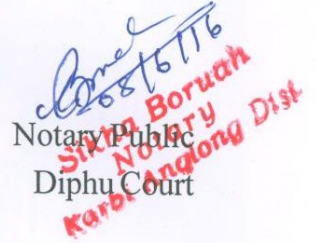 08/6/16
Notary Public
Diphu Court
Boruah
Notary
Karbi Anglong Dist